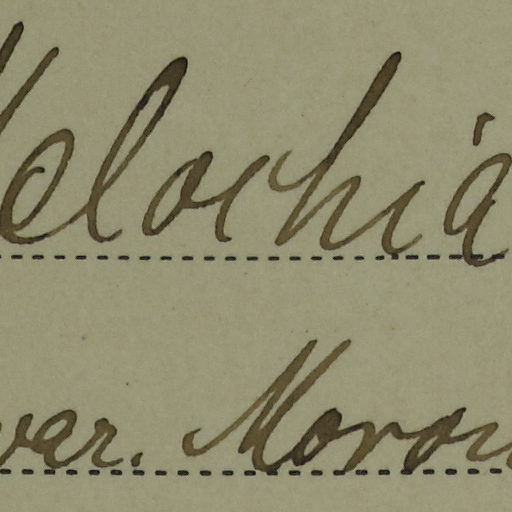 Melochia
var. Moron